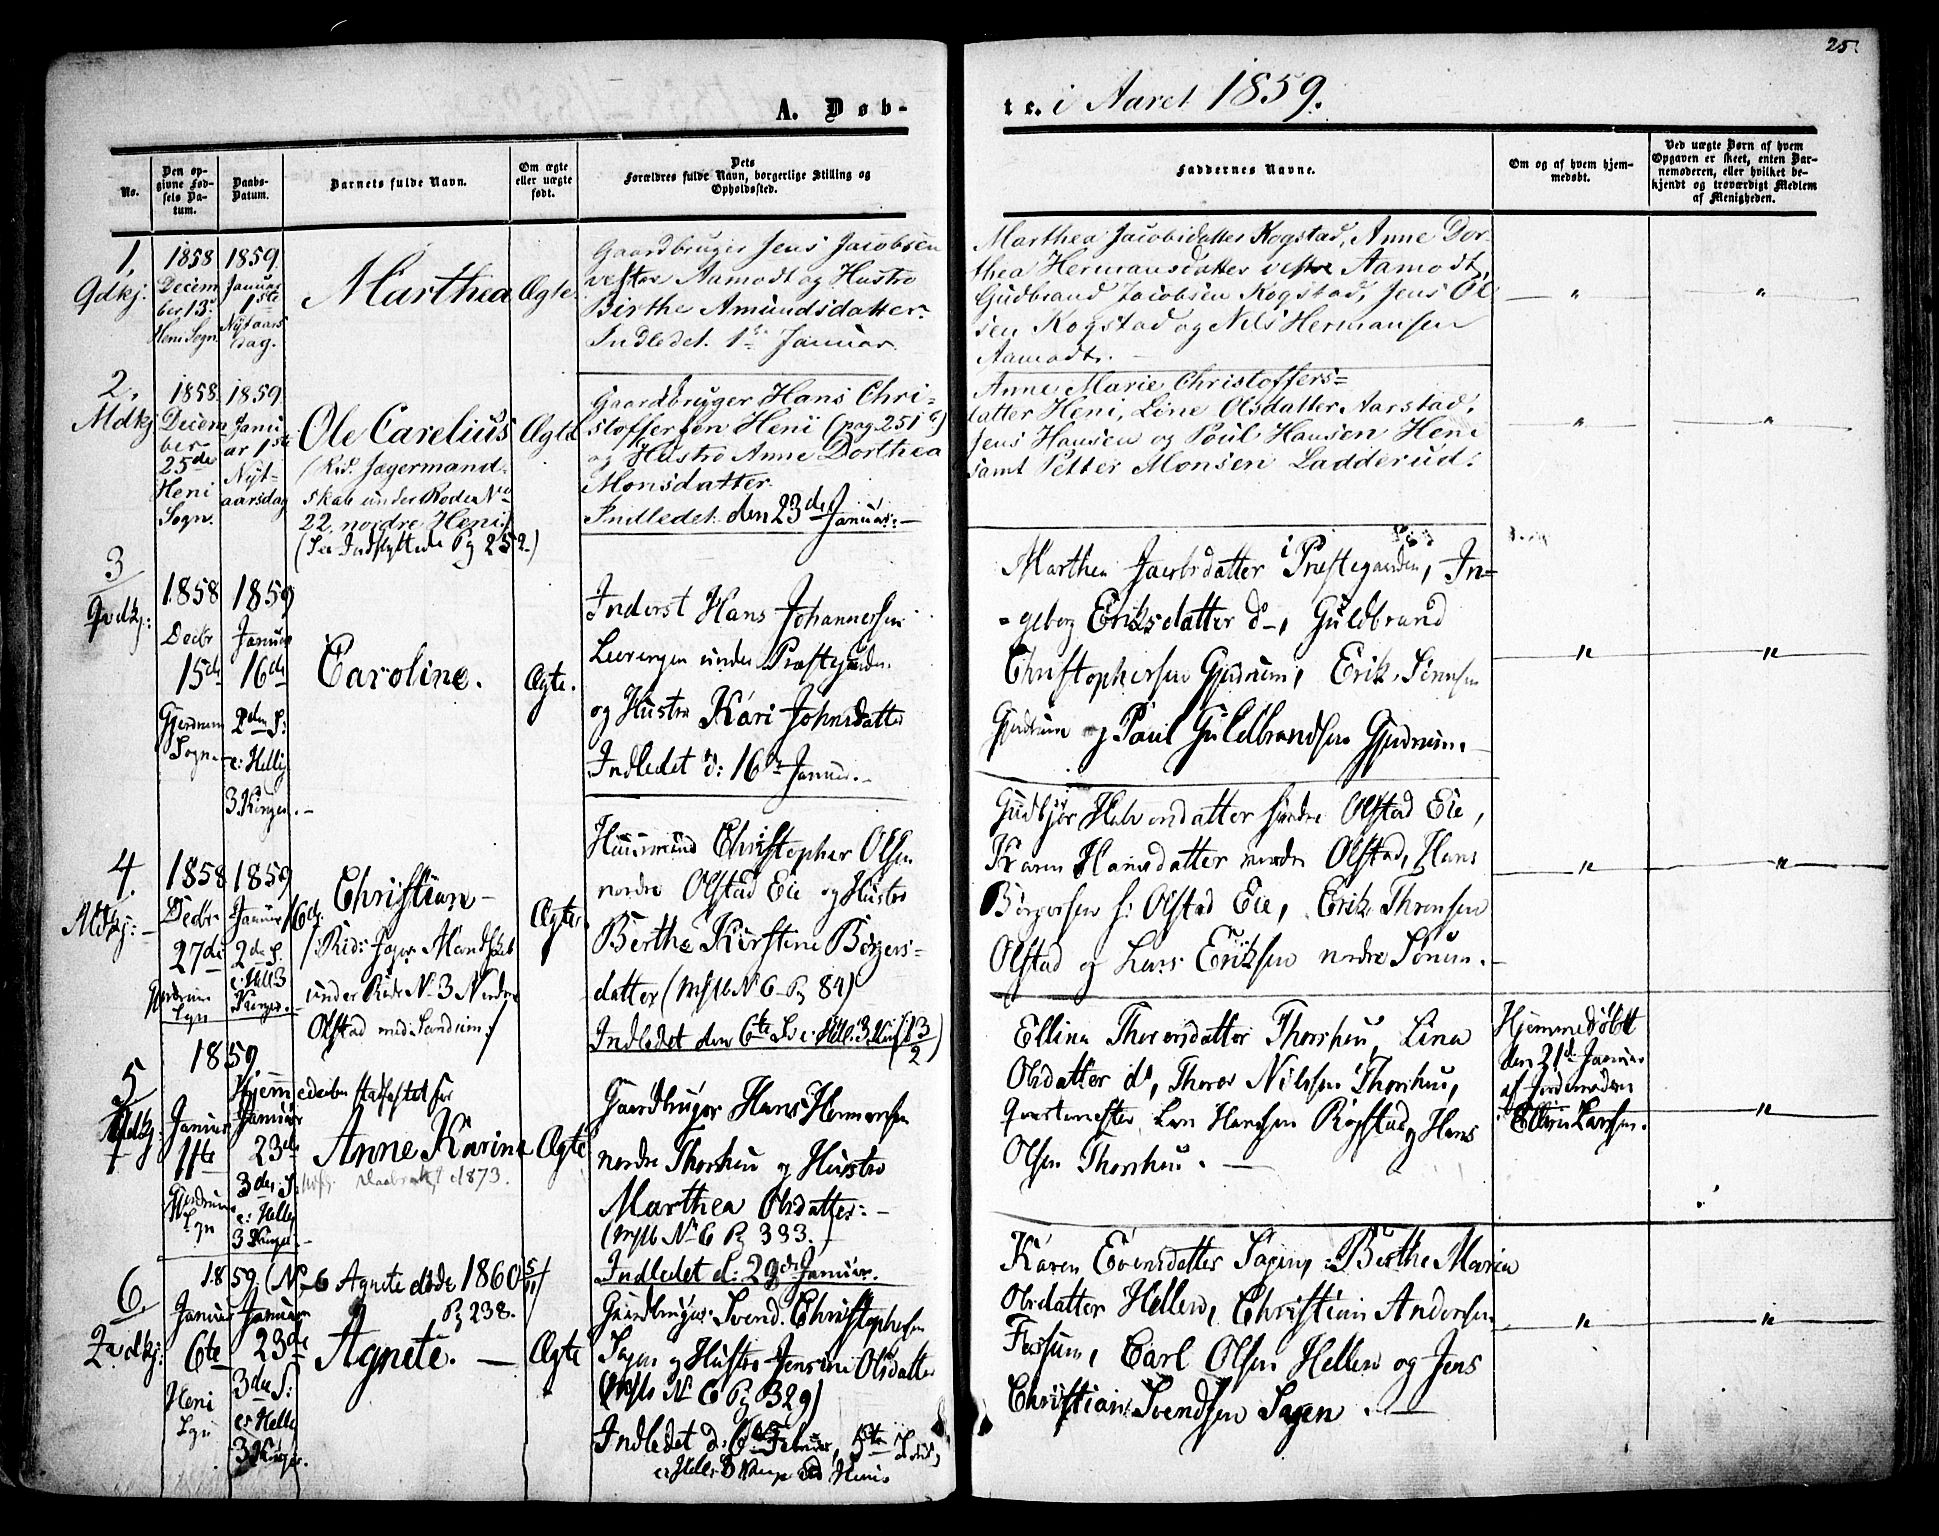 25.
A. Døb-
te. i Aaret 1859.
No.
Den op-
givne Fød-
sels Da-
tum.
Daabs-
Datum.
Barnets fulde Navn.
Om ægte
eller uægte
født.
Dets
Forældres fulde Navn, borgerlige Stilling og
Opholdssted.
Faddernes Navne.
Om og af hvem hjem-
medøbt.
Ved uægte Børn af hvem
Opgaven er skeet, enten Bar-
nemoderen, eller hvilket be-
kjendt og troværdigt Medlem
af Menigheden.
1.
Gdkj:
1858
Decem
ber 13.
Heni Sogn.
1859
Januar
1ste
Nytaars
dag.
Marthea
Ægte
Gaardbruger Jens Jacobsen
vestre Aamodt og Hustro
Birthe Amundsdatter.
Indledet 1ste Januar.
Marthea Jacobsdatter Kogstad, Anne Dor-
thea Hermansdatter vestre Aamodt,
Gudbrand Jacobsen Kogstad, Jens Ol
sen Kogstad og Nils Hermansen
Aamodt. -
2.
Mdkj
1858
Decem
ber
25de
Heni
Sogn.
1859
Janu
ar 1ste
Nyt-
aarsdag
Ole Carelius
(Rid. Jægermand-
skab under Rode No
22 nordre Heni.)
(See Indflyttede Pg 252.)
Ægte
Gaardbruger Hans Chri-
stoffersen Heni (pag. 251)
og Hustro Anne Dorthea
Monsdatter
Indledet den 23de Januar. -
Anne Marie Christoffers=
datter Heni, Line Olsdatter Aarstad,
Jens Hansen og Poul Hansen Heni
samt Petter Monsen Ladderud.
3
1858
Decbr
15de
Gjerdrum
Sogn.
1859
Januar
16de
2den S:
e: Hellig
3 Konger. -
Caroline.
Ægte.
Inderst Hans Johannessen
under Præstgaarden
og Hustro Kari Johnsdatter
Indledet d: 16de Januar. -
Marthea Jacobsdatter i Præstegaarden, In=
= geborg Eriksdatter do -, Guldbrand
Christophersen Gjerdrum, Erik
Gjerdrum og Paul Guldbrandsen Gjerdrum. -
4.
Mdkj: -
1858
Decbr
27de
Gjerdrum
Sogn
1859
Januar 16de
2de S.
e: Hell 3
Konger. -
Christian -
(: Rid: Jæger Mandskab
under Rode No 3 Nordre
Olstad med Sandum :)
Ægte
Huusmand Christopher Olsen
nordre Olstad Eie og Hustro
Berthe Kirstine Börgers-
datter (No 6 Pg 84)
Indledet den 6te S. e: Hell. 3 Kong (13/2)
Gudbjør Halvorsdatter søndre Olstad Eie,
Karen Hansdatter nordre Olstad, Hans
Börgersen s: Olstad Eie, Erik Thronsen
Olstad og Lars Eriksen nordre . -
5
1859.
Januar
11te
Gjerdrum
Sogn
Hjemmedaaben stadfæstet før
Januar
23de
3die S.
e: Hellig
3 Konger. -
Anne Karine
1873.
Ægte
Gaardbruger Hans Hermansen
nordre Thorshau og Hustro
Marthea Olsdatter: -
(No 6 Pg 333.)
Indledet d: 29de Januar.
Ellina Thorersdatter Thorshau, Lina
Olsdatter do, Thorer Nilssen Thorshau,
Qvarteermester Hansen Kogstad og Hans
Olsen Thorshau. -
Hjemmedøbt
den 21de Januar
af Jordemoderen
Larsen.
6.
1859. (No 6 Agnete døde 1860 5/11
Pg 238.
Januar
6te
Heni
Sogn
Januar
23de
3die S:
e: Hellig
3 Konger.
Agnete. -
Ægte
Gaardbruger Svend Christophersen
Sagen og Hustro Jensine Olsdatter
(No 6 Pg 329)
Indledet d: 6te Februar, 5te S.
e: Hell. 3 Konger ved Heni.
Karen Evensdatter Sagen, Berthe Maria
Olsdatter Hellen, Christian Andersen
Carl Olsen Hellen og Jens
Christian Svendsen Sagen. -